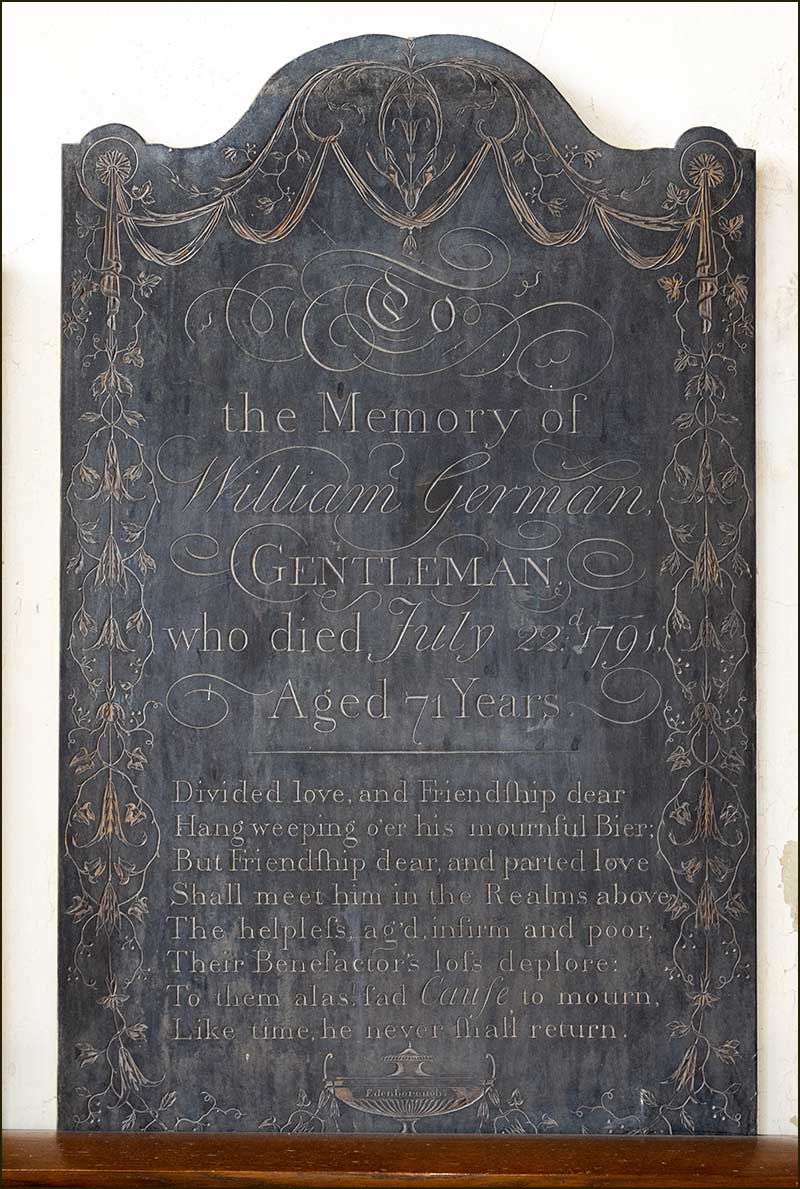 To
the Memory of
William German,
GENTLEMAN,
who died July 22.d 1791,
Aged 71 Years.
Divided love, and Friendſhip dear
Hang weeping o'er his mournful Bier;
But Friendſhip dear, and parted love
Shall meet him in the Realms above,
The helpleſs, ag'd, infirm and poor,
Their Benefactor's loſs deplore:
To them alas! ſad Cauſe to mourn,
Like time, he never ſhall return.
Edenborough.